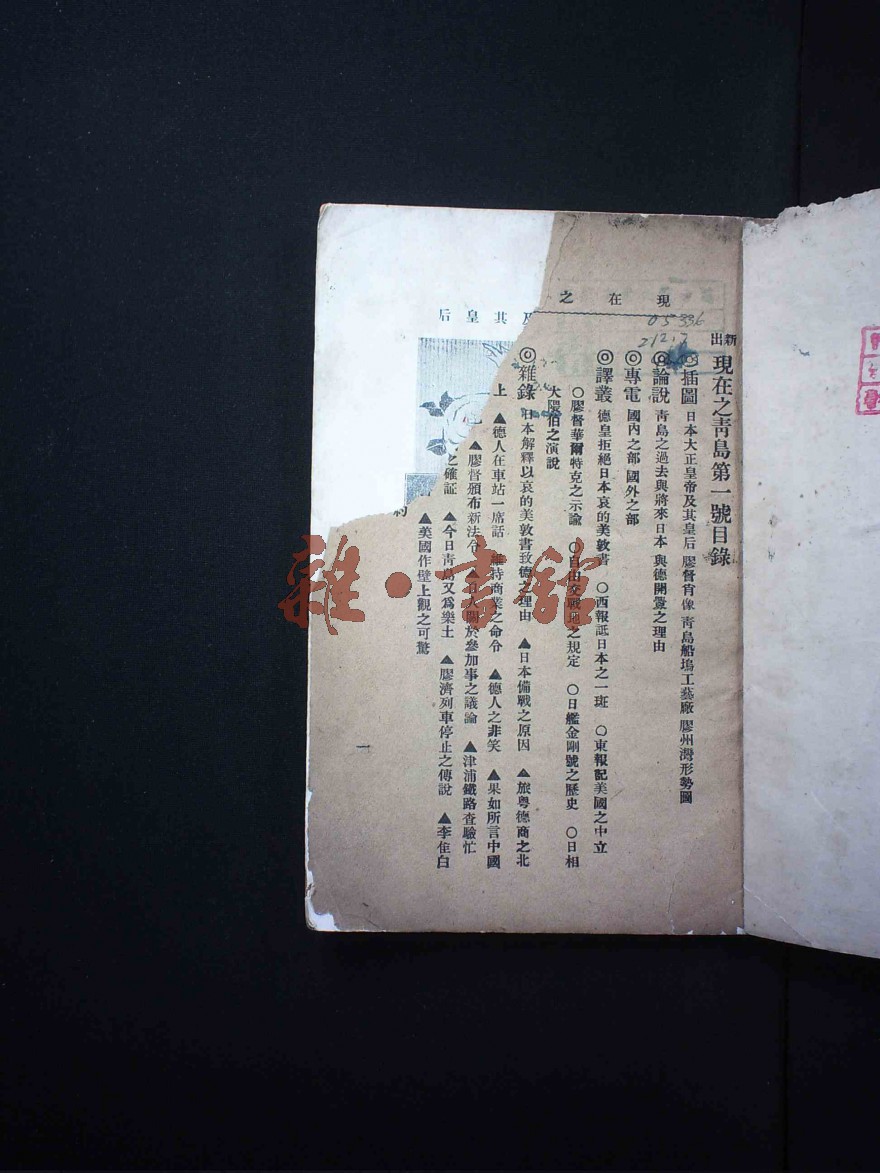 現在之
新出 現在之青島第一號目錄
◎插圖 日本大正皇帝及其皇后 膠督肖像 青島船塢工藝廠 膠州灣形勢圖
◎論說 青島之過去與將來日本 與德開釁之理由
◎專電 國內之部 國外之部
◎譯叢 德皇拒絕日本哀的美敦書 ○西報詆日本之一斑 ○東報記美國之中立
○膠督華爾特克之示諭 ○自由交戰地之規定 ○日艦金剛號之歷史 ○日相
大隈伯之演說
◎雜錄 日本解釋以哀的美敦書致德之理由 ▲日本備戰之原因 ▲旅粤德商之北
上 ▲德人在車站一席話 維持商業之命令 ▲德人之非笑 ▲果如所言中國
▲膠督頒布新法令 ▲日人關於參加事之議論 ▲津浦鐵路查驗忙
之確証 ▲今日青島又為樂土 ▲膠濟列車停止之傳說 ▲李隹白
▲美國作壁上觀之可驚
一
及其皇后
05336
212.7
雜·書館